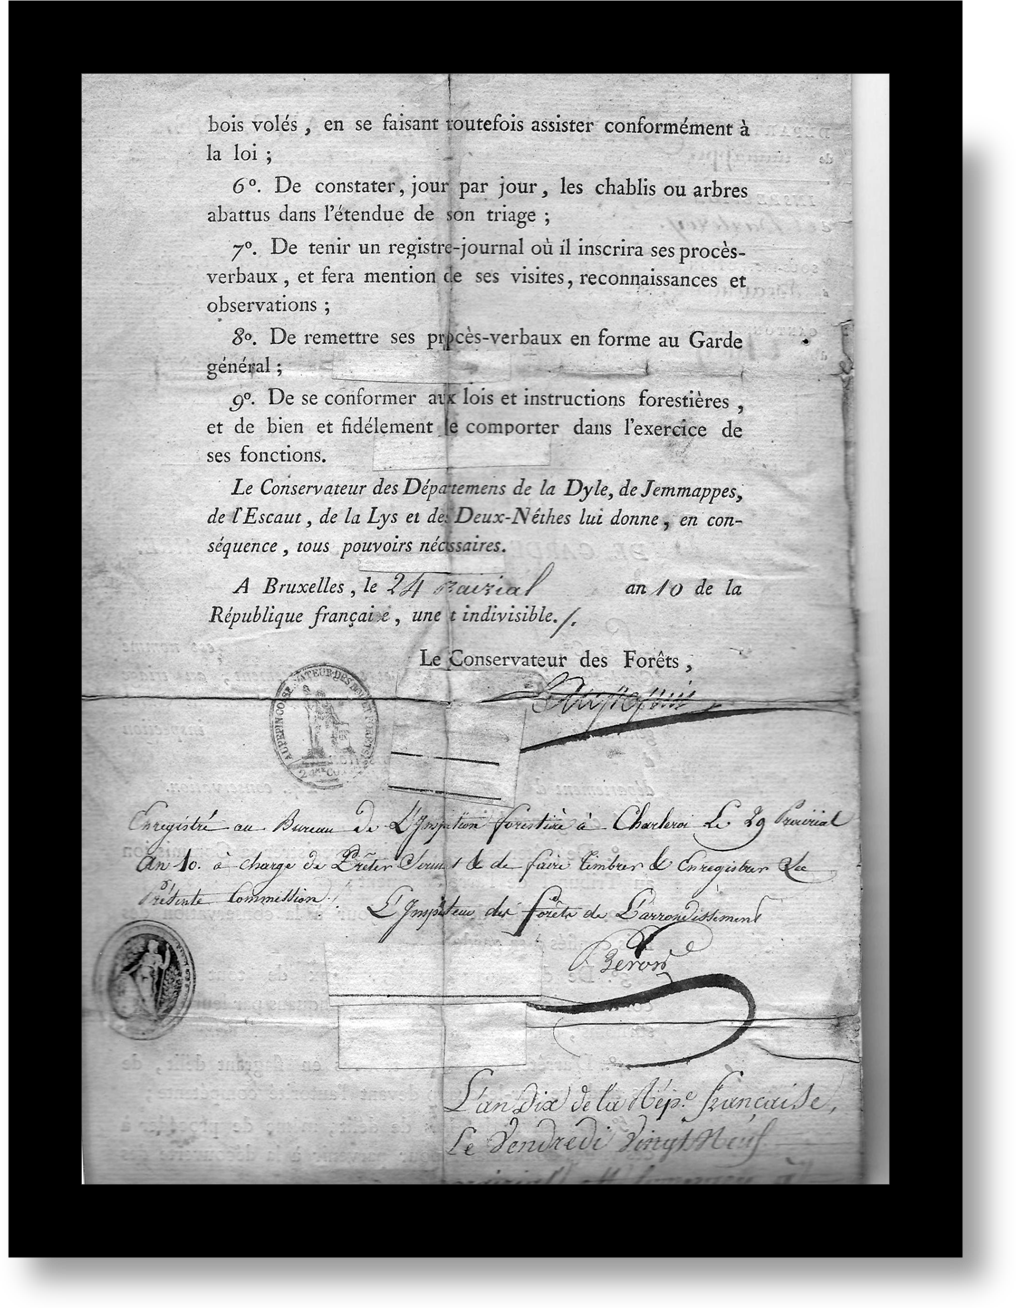 bois volés , en se faisant toutefois assister conformément à
la loi ;
6°. De constater, jour par jour, les chablis ou arbres
abattus dans l'étendue de son triage ;
7°. De tenir un registre-journal où il inscrira ses procès-
verbaux, et fera mention de ses visites, reconnaissances et
observations ;
8°. De remettre ses procès-verbaux en forme au Garde
général ;
9°. De se conformer aux lois et instructions forestières ,
et de bien et fidélement se comporter dans l'exercice de
ses fonctions.
Le Conservateur des Départemens de la Dyle, de Jemmappes,
de l'Escaut, de la Lys et des Deux-Nêthes lui donne, en con-
séquence, tous pouvoirs nécessaires.
A Bruxelles, le 24 prairial an 10 de la
République française, une et indivisible./.
Le Conservateur des Forêts,
Enregistré au Bureau de L'Inspection forestière à Charleroi Le 29 Prairial
an 10. à charge de Prêter Serment & de faire timbrer & Enregistrer
Présente Commission.
L'Inspecteur des forêts de L'arrondissement
L'an Dix de la Rép.e française,
Le Vendredi Vingt Neuf